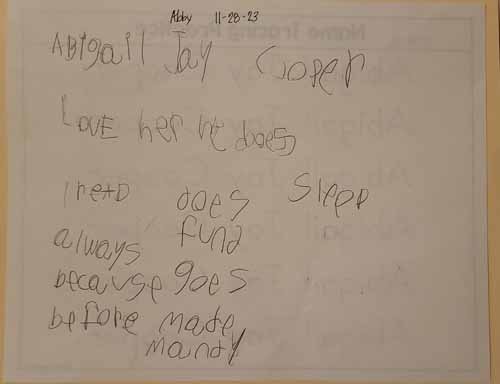 Abby 11-28-23
ABigail Jay Cooper
LOVE her he does
does sleep
always fund
because goes
before made
mandy